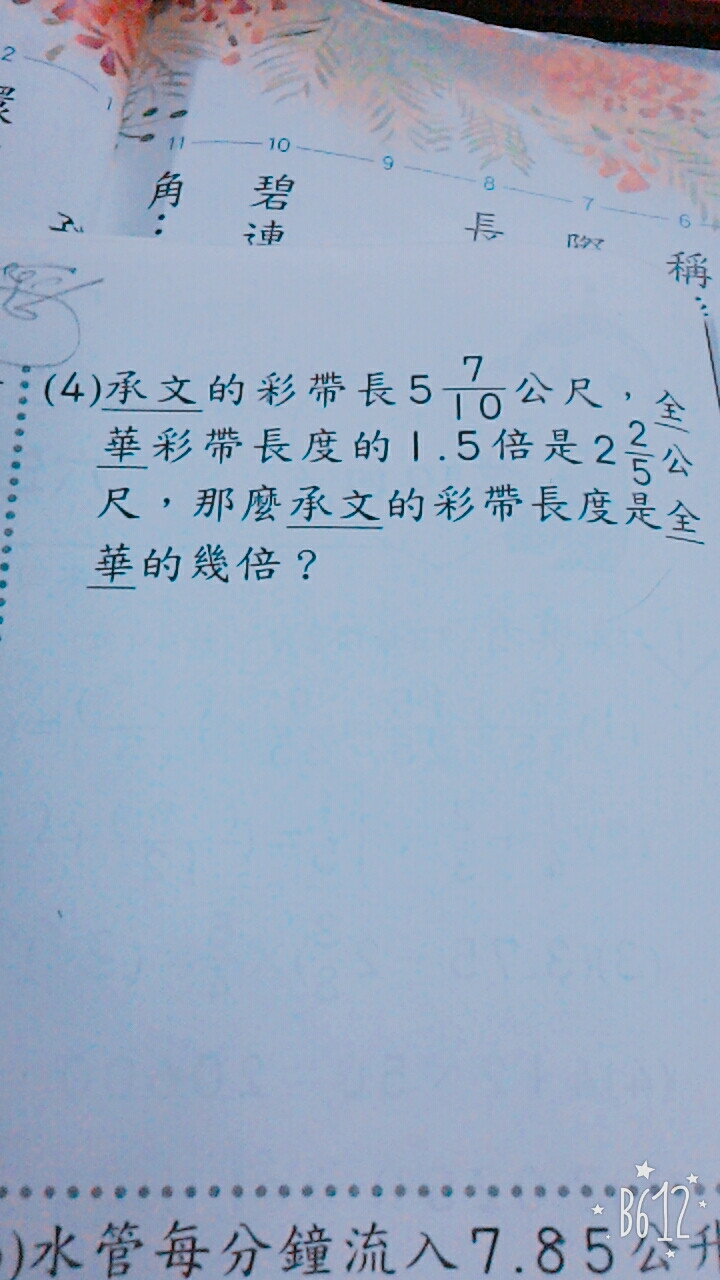 2
1
11 10 9 8 7 6
角 碧
連 長 際
稱
(4)承文的彩帶長5 7/10公尺，全
華彩帶長度的1.5倍是2 2/5公
尺，那麼承文的彩帶長度是全
華的幾倍？
)水管每分鐘流入7.85公升
B612